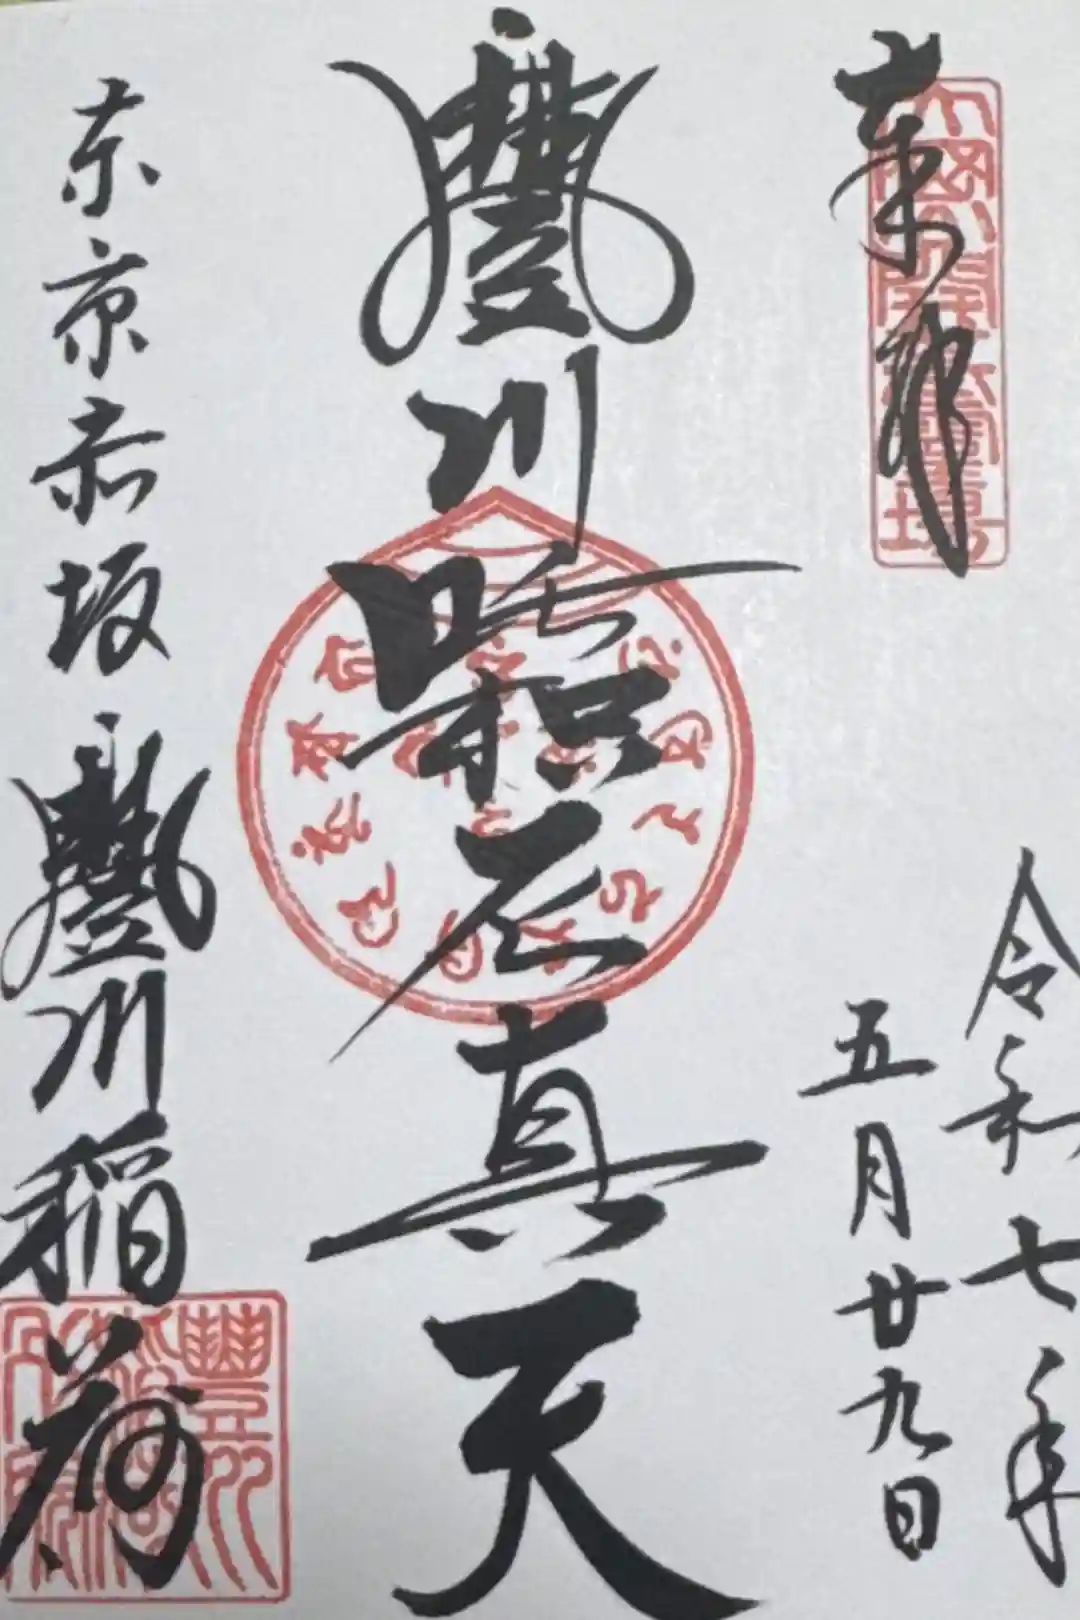 奉拝
令和七年
五月廿九日
豐川吒枳尼真天
東京赤坂豐川稲荷